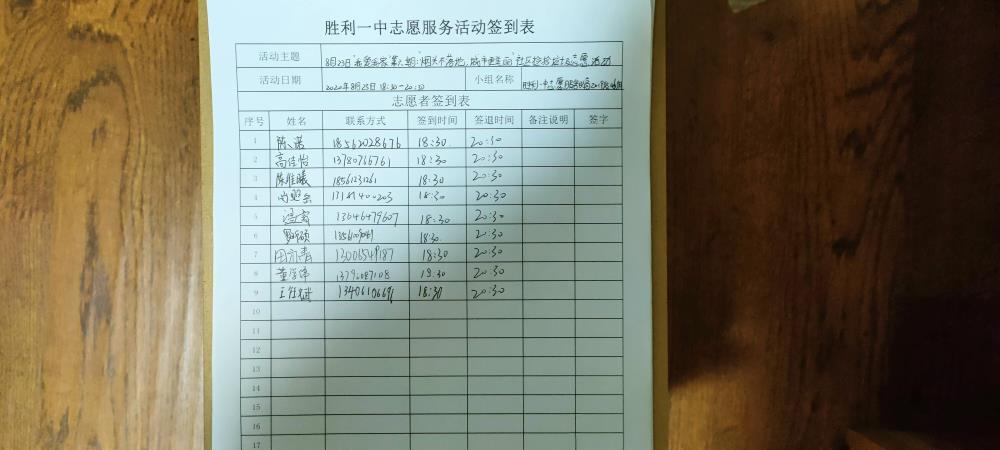 胜利一中志愿服务活动签到表
活动主题 8月23日 第六期:"烟头不落地,城市更美丽"社区捡拾烟头志愿活动
活动日期 2020年8月23日 18:30—20:30 小组名称 胜利一中志愿服务
志愿者签到表
序号 姓名 联系方式 签到时间 签退时间 备注说明 签字
1 陈诺 18562028676 18:30 20:30
2 高佳怡 13780766761 18:30 20:30
3 陈维曦 18561231261 18:30 20:30
4 13181400203 18:30 20:30
5 13646479607 18:30 20:30
6 18:30 20:30
7 田亦青 13006549187 18:30 20:30
8 董 13792087108 18:30 20:30
9 王 13406106691 18:30 20:30
10
11
12
13
14
15
16
17